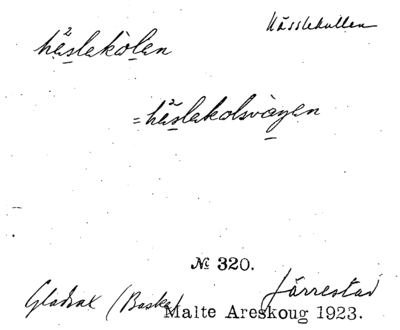 Hässlekullen
häslekòlen
= häslekolsvägen
№ 320.
Gladsax (Baske) Järrestad
Malte Areskoug 1923.